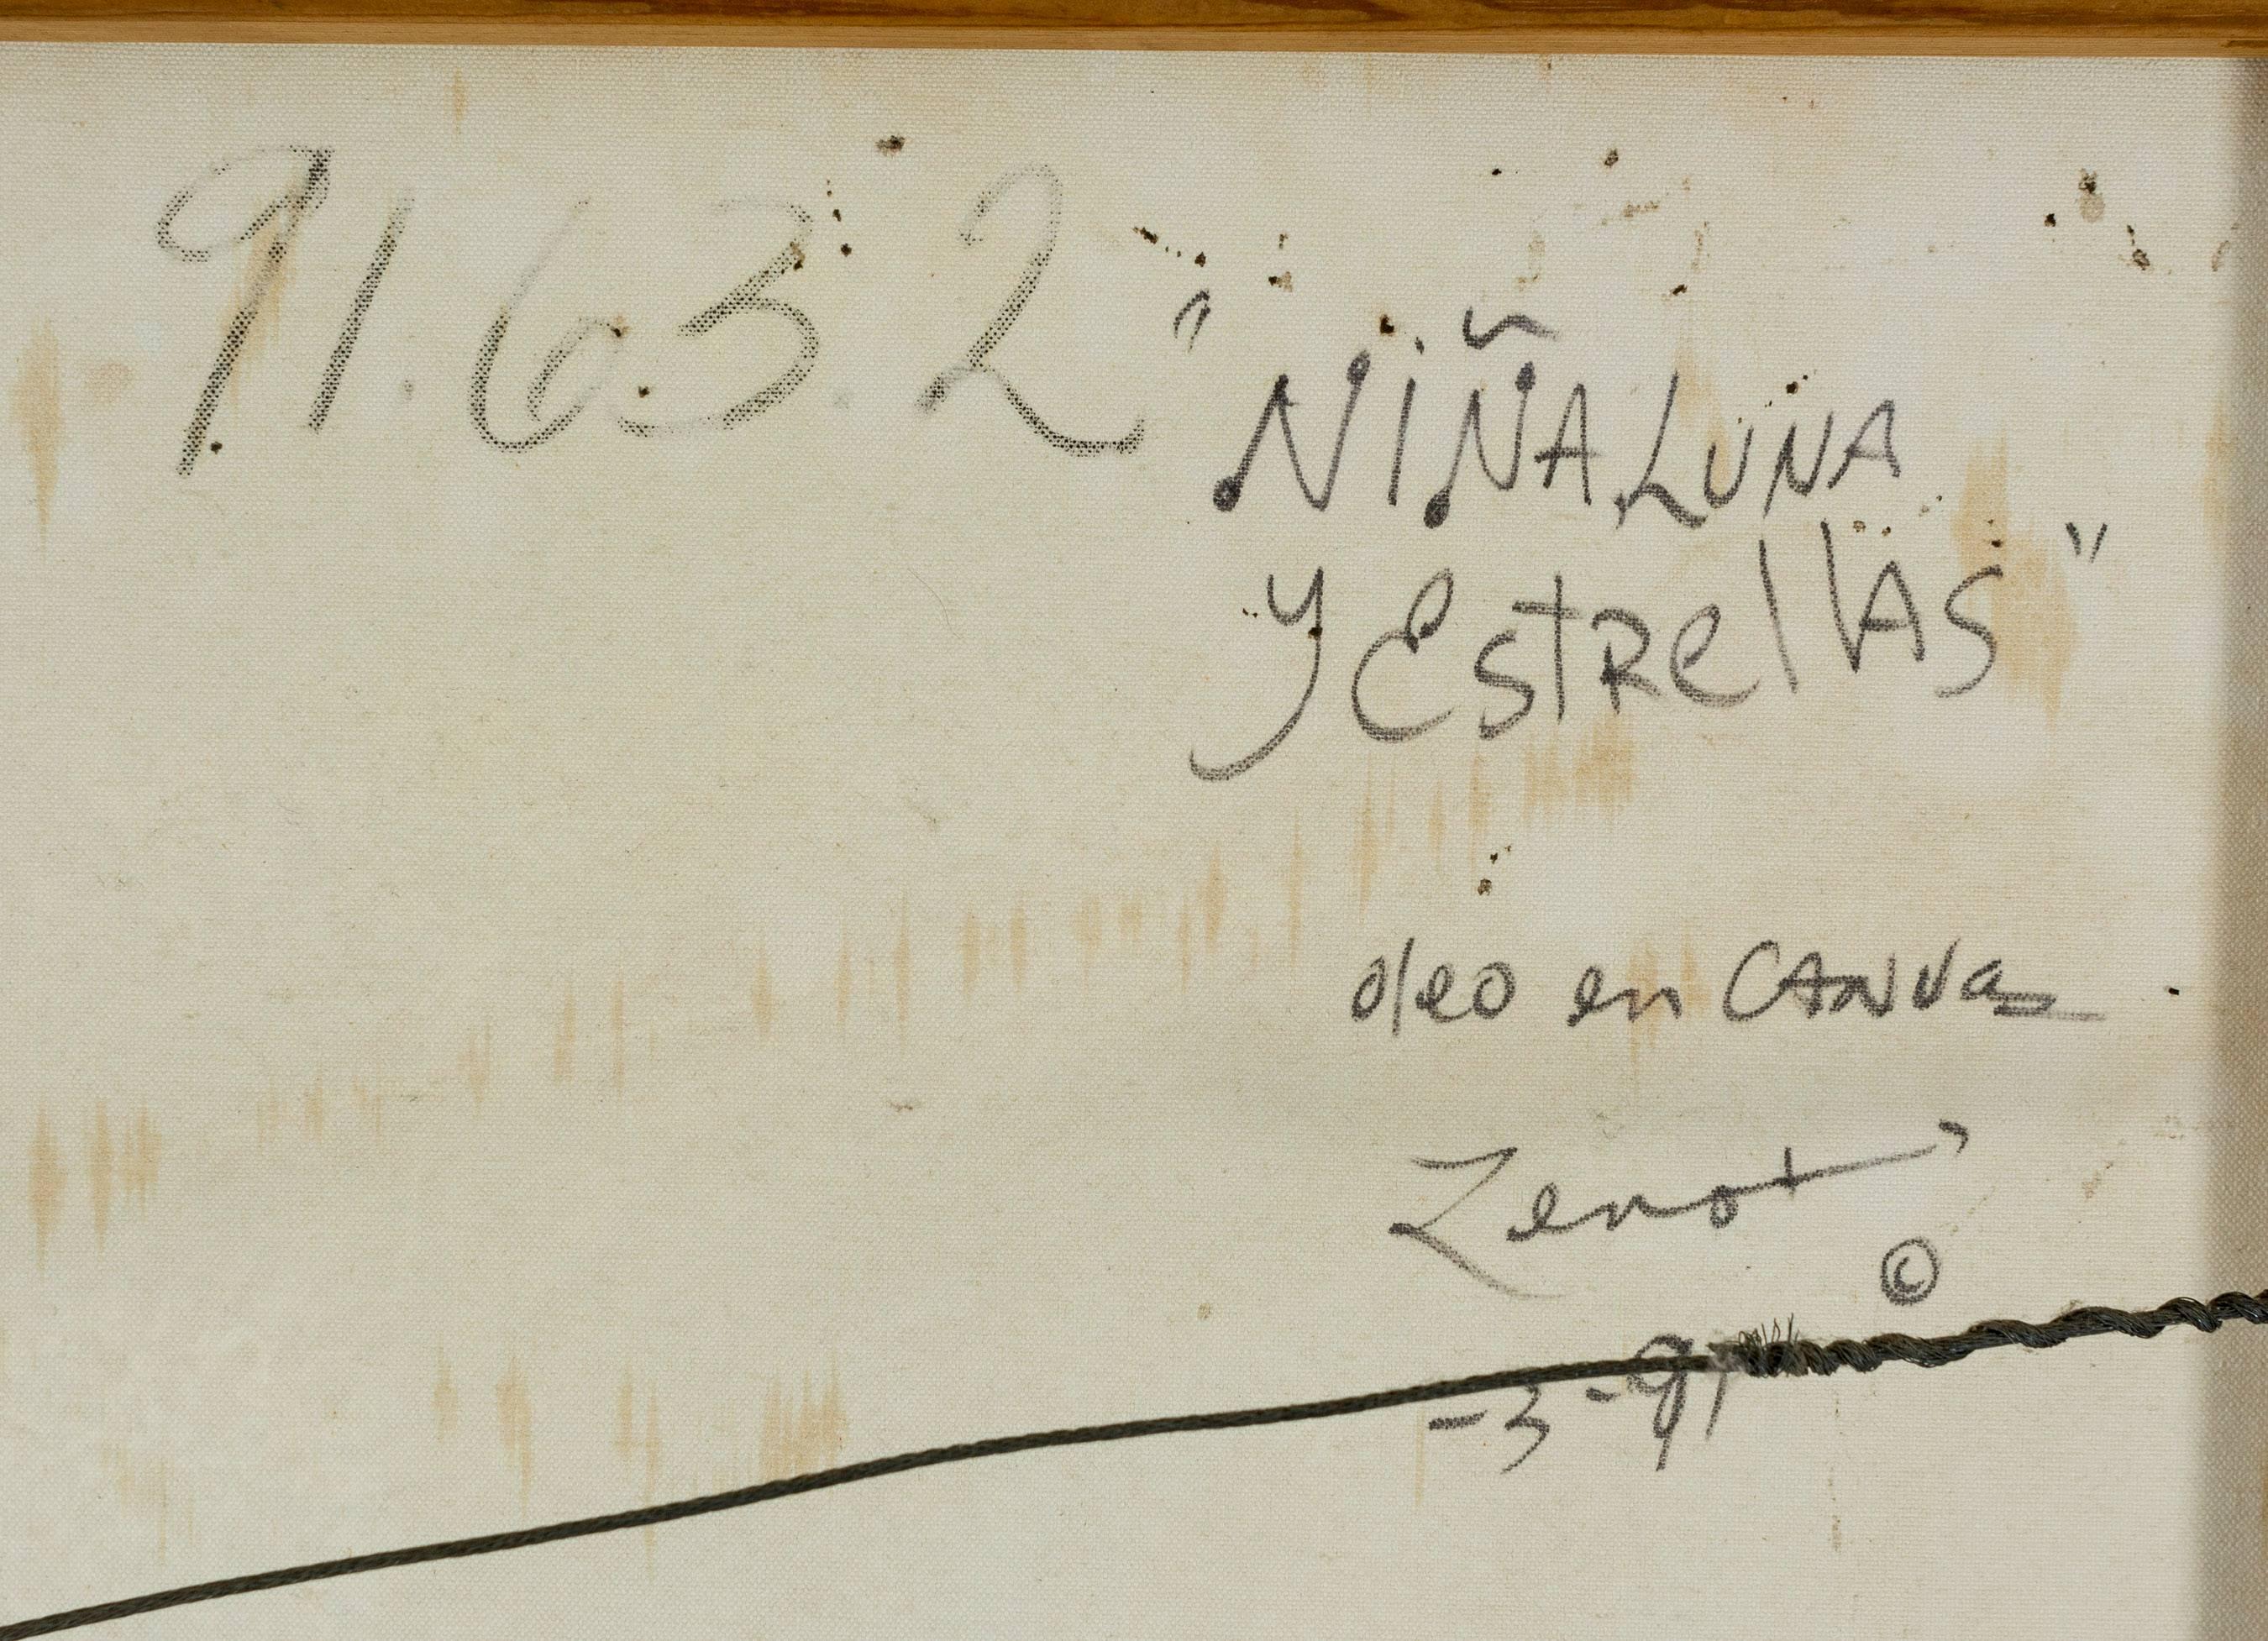 91.63.2
"NIÑA LUNA
y EstRellAS"
oleo en CANVas
Zenot
©
-3-91